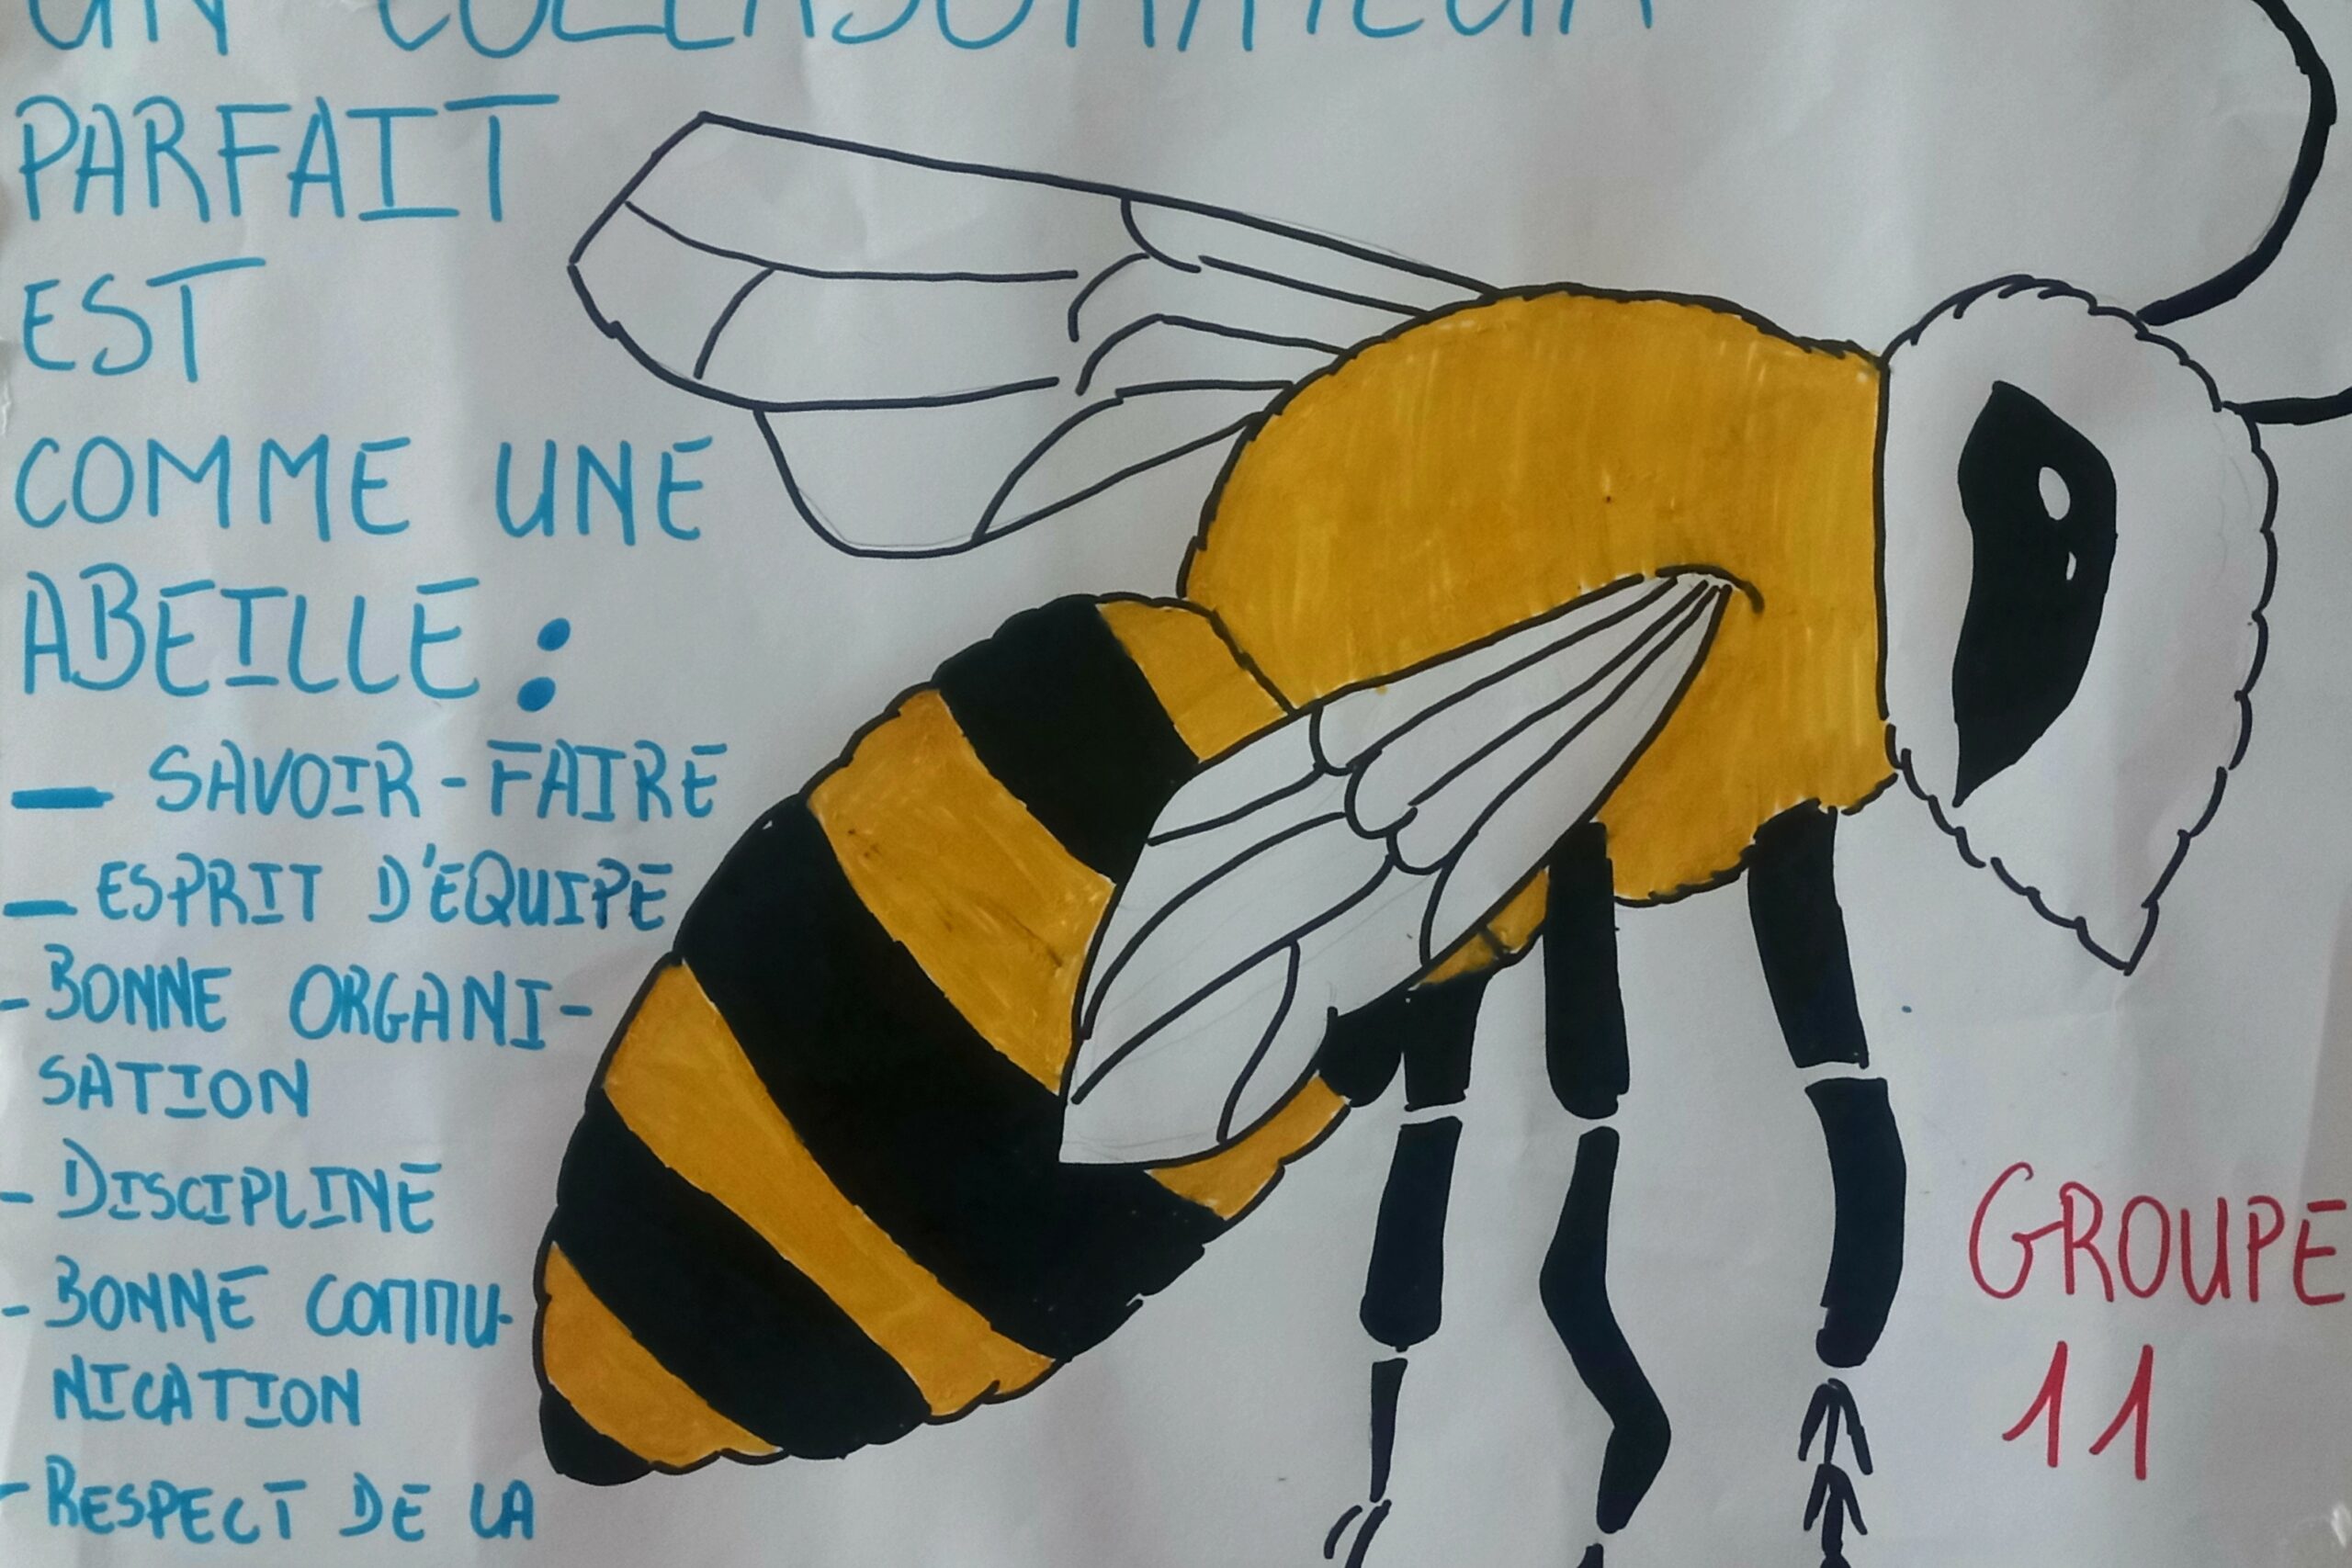 UN COLLABORATEUR
PARFAIT
EST
COMME UNE
ABEILLE :
- SAVOIR-FAIRE
- ESPRIT D'EQUIPE
- BONNE ORGANI-
SATION
- DISCIPLINE
- BONNE COMMU-
NICATION
- RESPECT DE LA
GROUPE
11